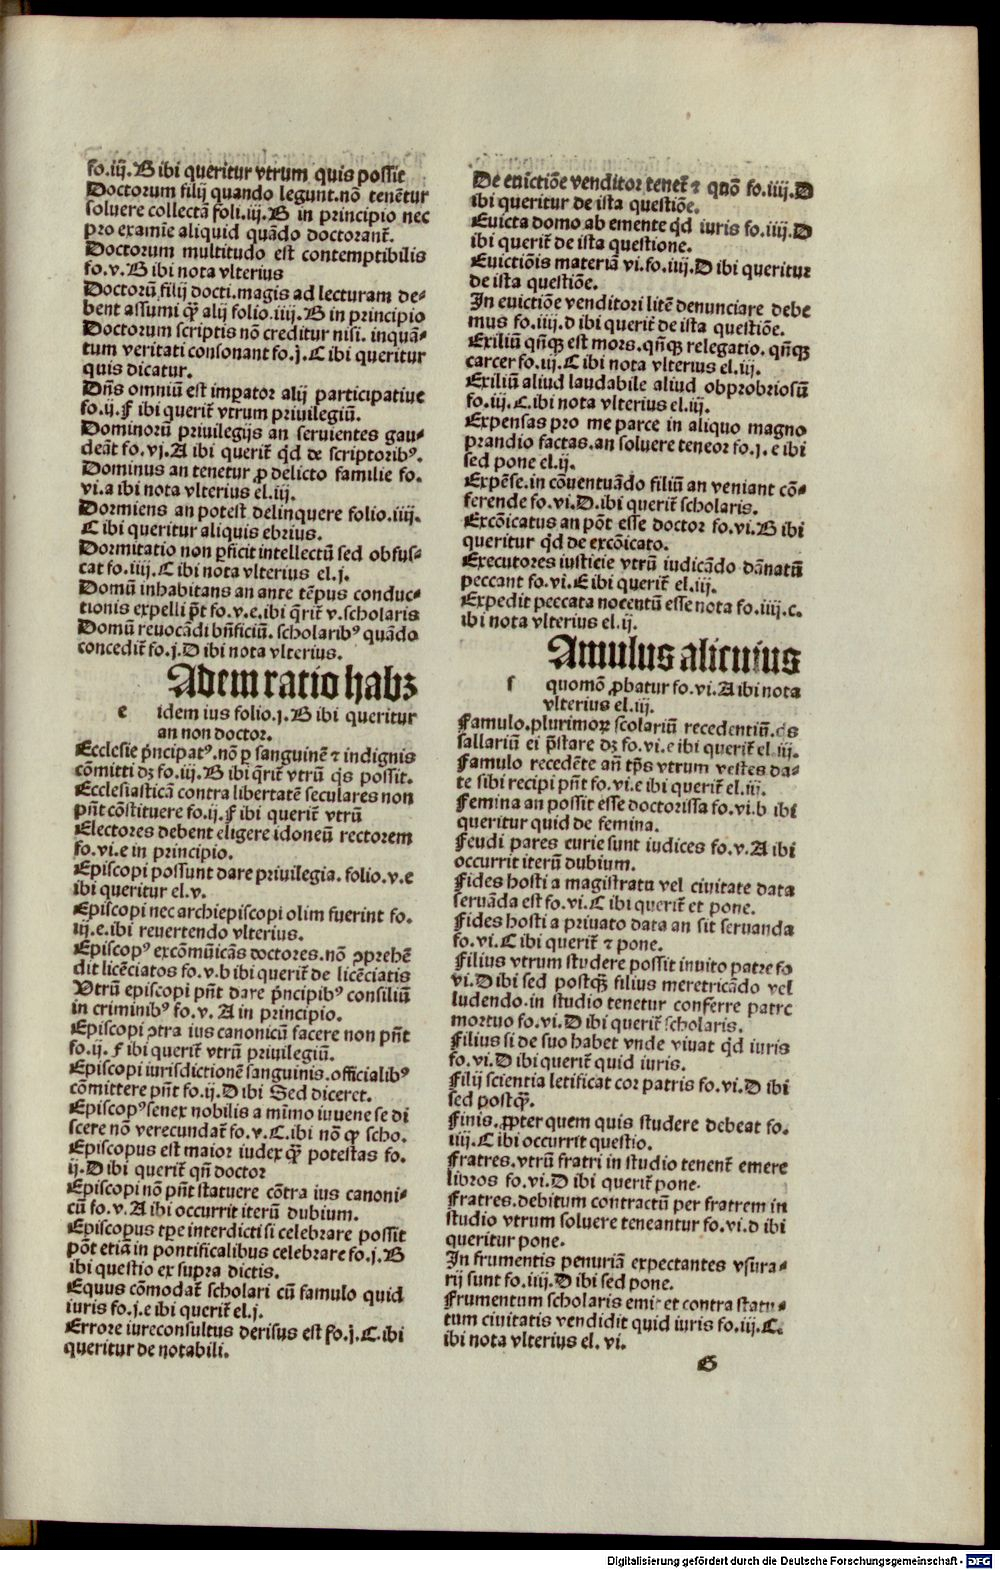 fo.iij.B ibi queritur vtrum quis possit
Doctorum filij quando legunt.nō tenētur
soluere collectā foli.iij.B in principio nec
pro examīe aliquid quādo doctorant̄.
Doctorum multitudo est contemptibilis
fo.v.B ibi nota vlterius
Doctorū filij docti.magis ad lecturam de⸗
bent assumi q̄ƺ alij folio.iiij.B in principio
Doctorum scriptis nō creditur nisi. inquā⸗
tum veritati consonant fo.j.C ibi queritur
quis dicatur.
Dn̄s omniū est imꝑator alij participatiue
fo.ij.F ibi querit̄ vtrum priuilegiū.
Dominorū priuilegijs an seruientes gau⸗
deāt fo.vj.A ibi querit̄ qd̄ de scriptoribꝰ.
Dominus an tenetur ꝓ delicto familie fo.
vi.a ibi nota vlterius el.iij.
Dormiens an potest delinquere folio.iiij.
C ibi queritur aliquis ebrius.
Dormitatio non ꝑficit intellectū sed obfus⸗
cat fo.iiij.C ibi nota vlterius el.j.
Domū inhabitans an ante tēpus conduc⸗
tionis expelli pōt fo.v.e.ibi q̄rit̄ v.scholaris
Domū reuocādi bn̄ficiū. scholaribꝰ quādo
concedit̄ fo.j.D ibi nota vlterius.
Adem ratio habƺ
e idem ius folio.j.B ibi queritur
an non doctor.
Ecclesie pn̄cipatꝰ.nō ꝑ sanguinē ⁊ indignis
cōmitti dƺ fo.iij.B ibi q̄rit̄ vtrū q̄s possit.
Ecclesiasticā contra libertatē seculares non
pn̄t cōstituere fo.ij.F ibi querit̄ vtrū
Electores debent eligere idoneū rectorem
fo.vi.e in principio.
Episcopi possunt dare priuilegia. folio.v.e
ibi queritur el.v.
Episcopi nec archiepiscopi olim fuerint fo.
iij.e.ibi reuertendo vlterius.
Episcopꝰ excōmūicās doctores.nō ꝯprehē
dit licēciatos fo.v.b ibi querit̄ de licēciatis
Vtrū episcopi pn̄t dare pn̄cipibꝰ consiliū
in criminibꝰ fo.v. A in principio.
Episcopi ꝯtra ius canonicū facere non pn̄t
fo.ij. F ibi querit̄ vtrū priuilegiū.
Episcopi iurisdictionē sanguinis.officialibꝰ
cōmittere pn̄t fo.ij.D ibi Sed diceret.
Episcopꝰ senex nobilis a mīmo iuuene se di
scere nō verecundat̄ fo.v.C.ibi nō ꝙ scho.
Episcopus est maior iudex q̄ƺ potestas fo.
ij.D ibi querit̄ qn̄ doctor
Episcopi nō pn̄t statuere cōtra ius canoni⸗
cū fo.v.A ibi occurrit iterū dubium.
Episcopus tꝑe interdicti si celebrare possit
pōt etiā in pontificalibus celebrare fo.j.B
ibi questio ex supra dictis.
Equus cōmodat̄ scholari cū famulo quid
iuris fo.j.e ibi querit̄ el.j.
Errore iureconsultus derisus est fo.j.C.ibi
queritur de notabili.
De euictiōe venditor tenet̄ ⁊ quō fo.iiij.D
ibi queritur de ista questiōe.
Euicta domo ab emente qd̄ iuris fo.iiij.D
ibi querit̄ de ista questione.
Euictiōis materiā vi.fo.iiij.D ibi queritur
de ista questiōe.
In euictiōe venditori litē denunciare debe
mus fo.iiij.d ibi querit̄ de ista questiōe.
Exiliū qn̄qƺ est mors. qn̄qƺ relegatio. qn̄qƺ
carcer fo.iij.C ibi nota vlterius el.iij.
Exiliū aliud laudabile aliud obprobriosū
fo.iij.C.ibi nota vlterius el.iij.
Expensas pro me parce in aliquo magno
prandio factas.an soluere teneor fo.j.e ibi
sed pone el.ij.
Expēse.in cōuentuādo filiū an veniant cō⸗
ferende fo.vi.D.ibi querit̄ scholaris.
Excōicatus an pōt esse doctor fo.vi.B ibi
queritur qd̄ de excōicato.
Executores iusticie vtrū iudicādo dānatū
peccant fo.vi.E ibi querit̄ el.iij.
Expedit peccata nocentū esse nota fo.iiij.c.
ibi nota vlterius el.ij.
Amulus alicuius
f quomō ꝓbatur fo.vi.A ibi nota
vlterius el.iij.
Famulo.plurimoꝝ scolariū recedentiū.q̄s
sallariū ei p̄stare dƺ fo.vi.e ibi querit̄ el.iij.
Famulo recedēte an̄ tp̄s vtrum vestes da⸗
te sibi recipi pn̄t fo.vi.e ibi querit̄ el.iij.
Femina an possit esse doctorissa fo.vi.b ibi
queritur quid de femina.
Feudi pares curie sunt iudices fo.v.A ibi
occurrit iterū dubium.
Fides hosti a magistratu vel ciuitate data
seruāda est fo.vi.C ibi querit̄ et pone.
Fides hosti a priuato data an sit seruanda
fo.vi.C ibi querit̄ ⁊ pone.
Filius vtrum studere possit inuito patre fo
vi.D ibi sed postqƺ filius meretricādo vel
ludendo.in studio tenetur conferre patre
mortuo fo.vi.D ibi querit̄ scholaris.
Filius si de suo habet vnde viuat qd̄ iuris
fo.vi.D ibi querit̄ quid iuris.
Filij scientia letificat cor patris fo.vi.D ibi
sed postq̄ƺ.
Finis.ꝓpter quem quis studere debeat fo.
iiij.C ibi occurrit questio.
Fratres.vtrū fratri in studio tenent̄ emere
libros fo.vi.D ibi querit̄ pone.
Fratres.debitum contractū per fratrem in
studio vtrum soluere teneantur fo.vi.d ibi
queritur pone.
In frumentis penuriā expectantes vsura⸗
rij sunt fo.iiij.D ibi sed pone.
Frumentum scholaris emit et contra statu⸗
tum ciuitatis vendidit quid iuris fo.iij.C.
ibi nota vlterius el. vi.
G
Digitalisierung gefördert durch die Deutsche Forschungsgemeinschaft - DFG